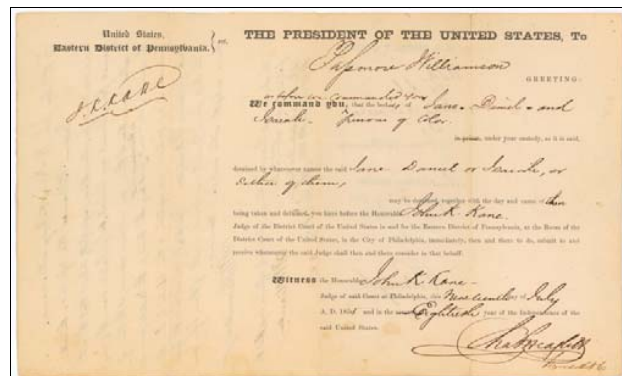 United States,
Eastern District of Pennsylvania. } ss.
J. K. KANE
THE PRESIDENT OF THE UNITED STATES, To
Passmore Williamson
GREETING:
as before we commanded you
We command you, that the bodies of Jane - Daniel - and
Isaiah - Persons of Color.
in prison, under your custody, as it is said,
detained by whatsoever names the said Jane Daniel or Isaiah, or
either of them,
may be detained, together with the day and cause of their
being taken and detained, you have before the Honorable John K. Kane.
Judge of the District Court of the United States in and for the Eastern District of Pennsylvania, at the Room of the
District Court of the United States, in the City of Philadelphia, immediately, then and there to do, submit to and
receive whatsoever the said Judge shall then and there consider in that behalf.
Witness the Honorable John K Kane -
Judge of said Court at Philadelphia, this Nineteenth of July
A. D. 185 and in the Eightieth year of the Independence of the
said United States.